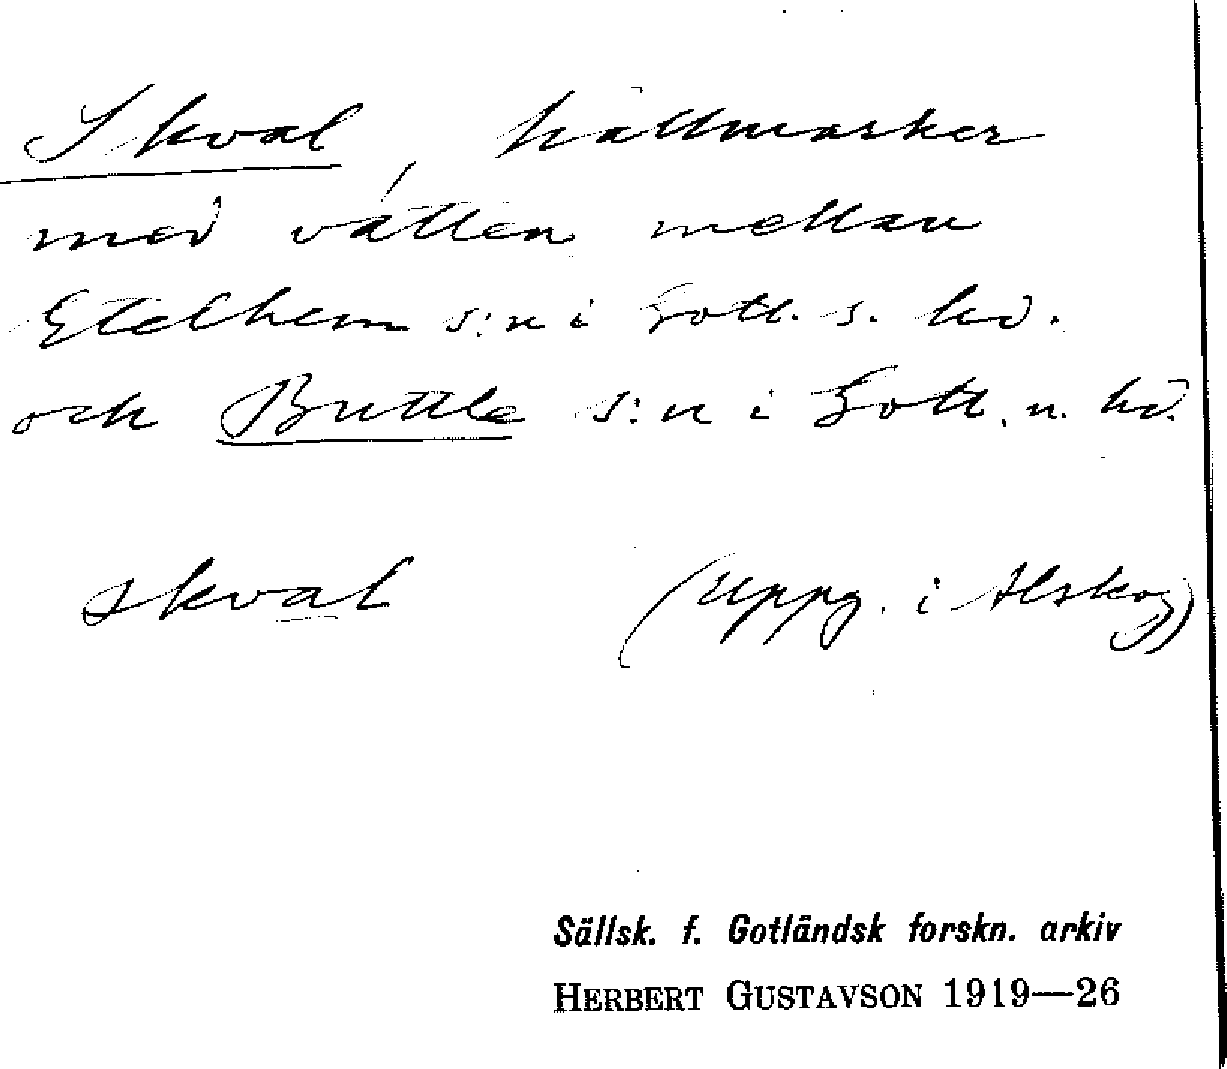 Skval, hällmarker
med vätten mellan
Etelhem s:n i Gotl. s. hd.
och Buttle s:n i Gotl. n. hd.
skval (Uppg. i Alskog)
Sällsk. f. Gotländsk forskn. arkiv
HERBERT GUSTAVSON 1919—26